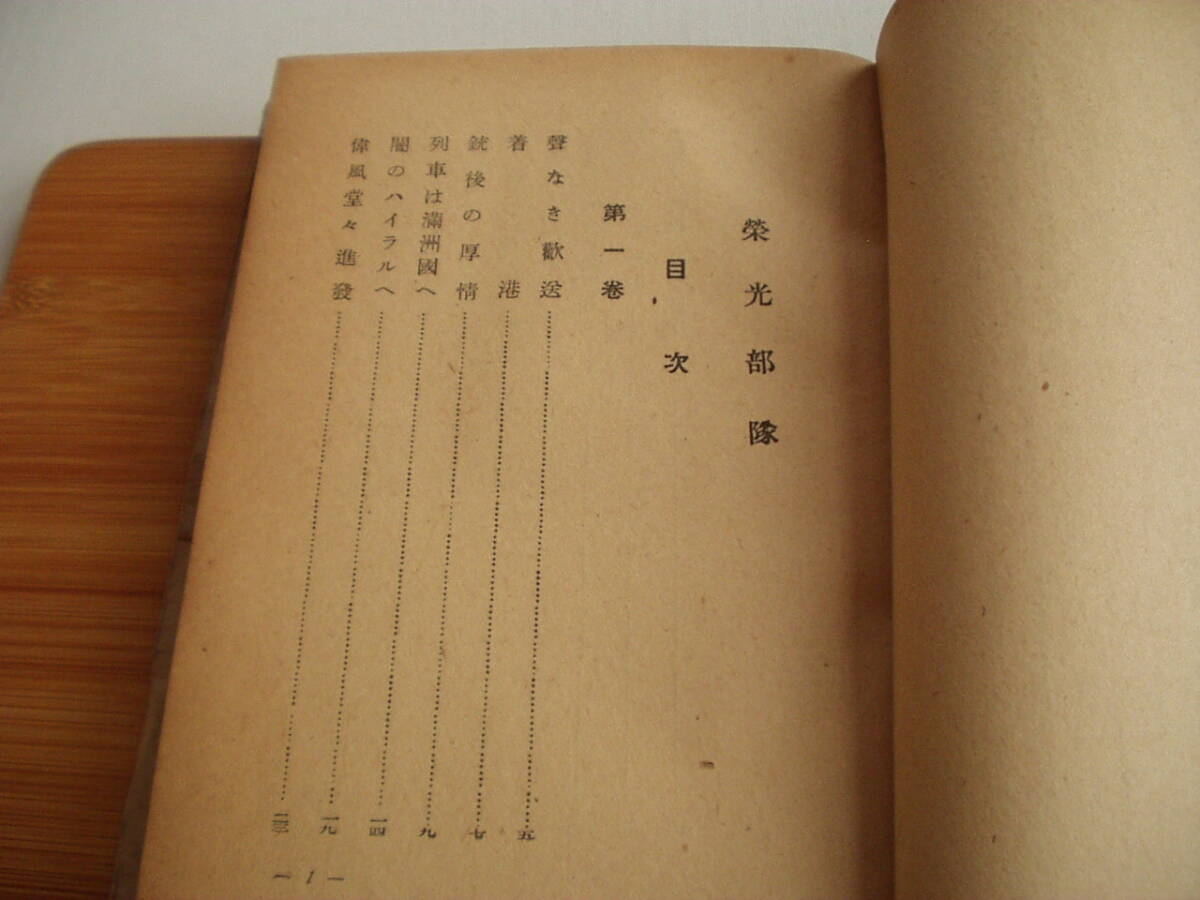 榮光部隊
目次
第一卷
聲なき歡送……五
着港……七
銃後の厚情……九
列車は滿洲國へ……一四
闇のハイラルへ……一九
偉風堂々進發……
— 1 —